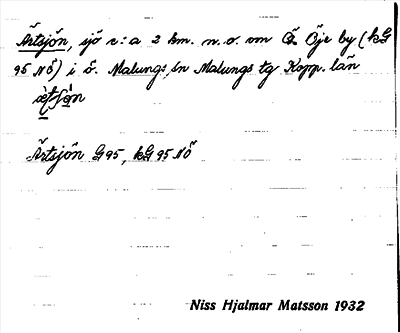 Ärtsjön, sjö c:a 2 km. n.o. om Ö. Öje by (kG
95 NÖ) i ö. Malungs, sn Malungs tg Kopp. län
Ärtsjön G 95, kG 95 NÖ
Niss Hjalmar Matsson 1932